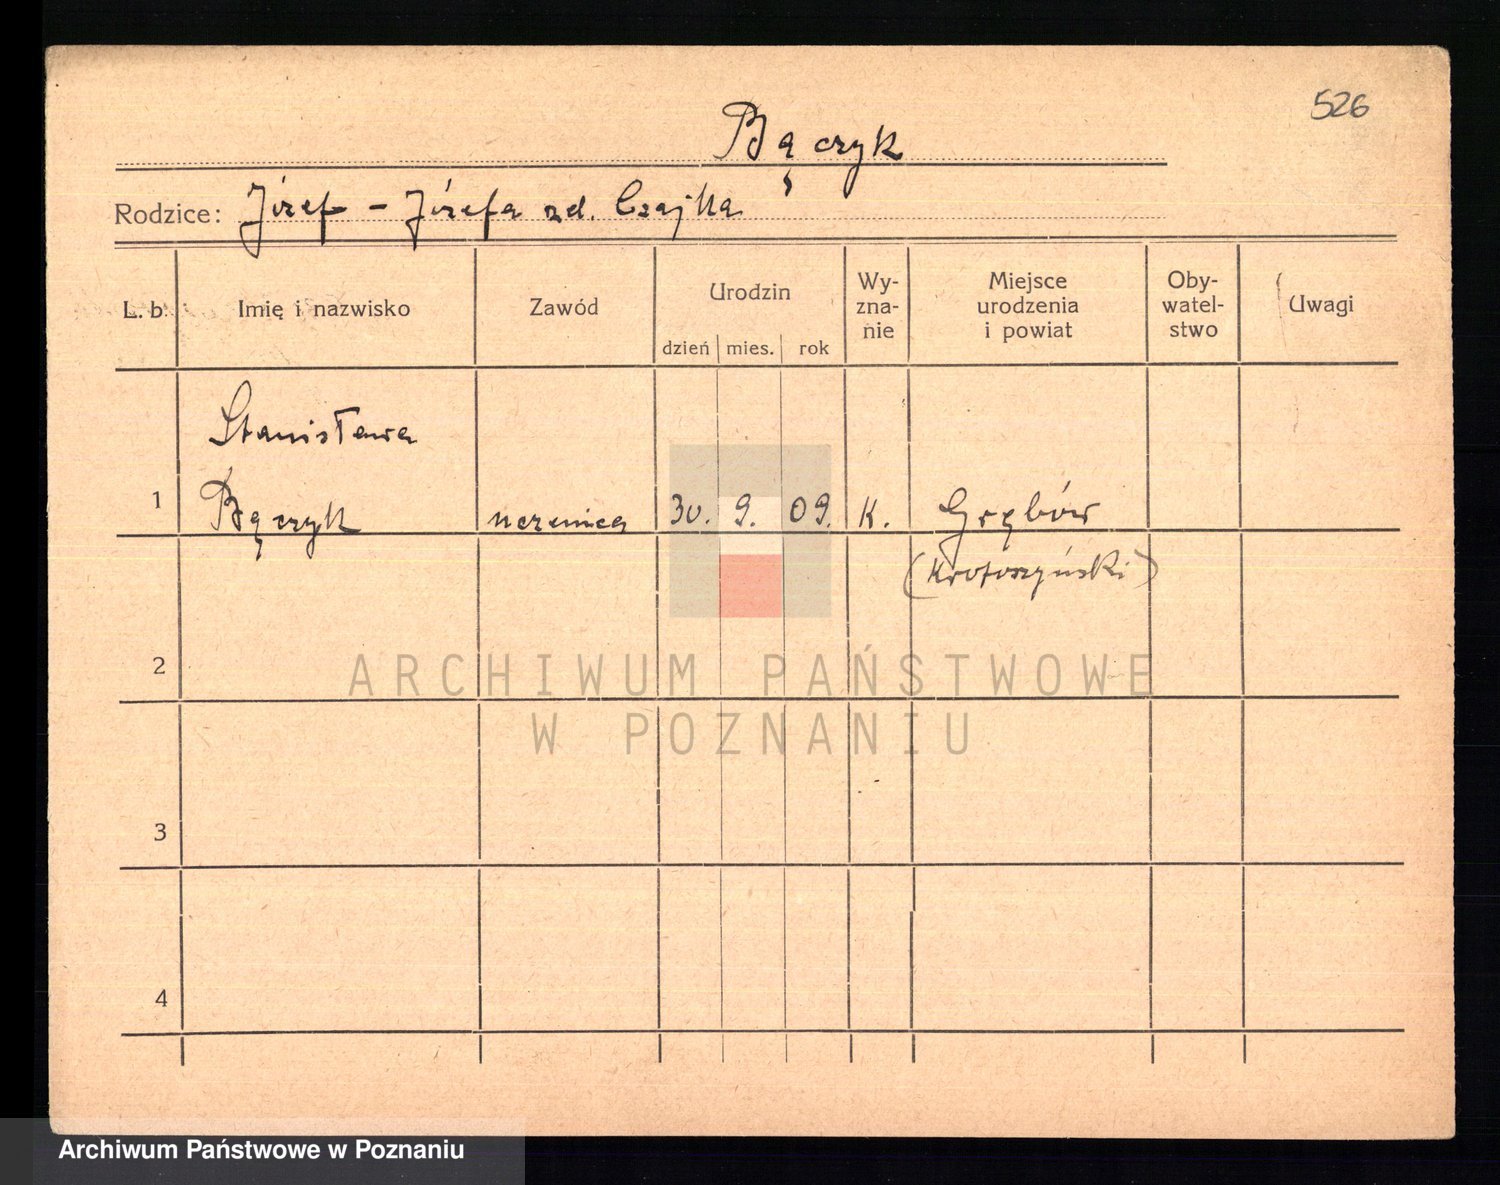 526
Bączyk
Rodzice: Józef - Józefa zd. Czajka
L. b. Imię i nazwisko Zawód Urodzin Wy-zna-nie Miejsce urodzenia i powiat Oby-watel-stwo Uwagi
dzień mies. rok
Stanisława
1 Bączyk uczenica 30. 9. 09. K. Grębów
(Krotoszyński)
2
ARCHIWUM PAŃSTWOWE
W POZNANIU
3
4
Archiwum Państwowe w Poznaniu